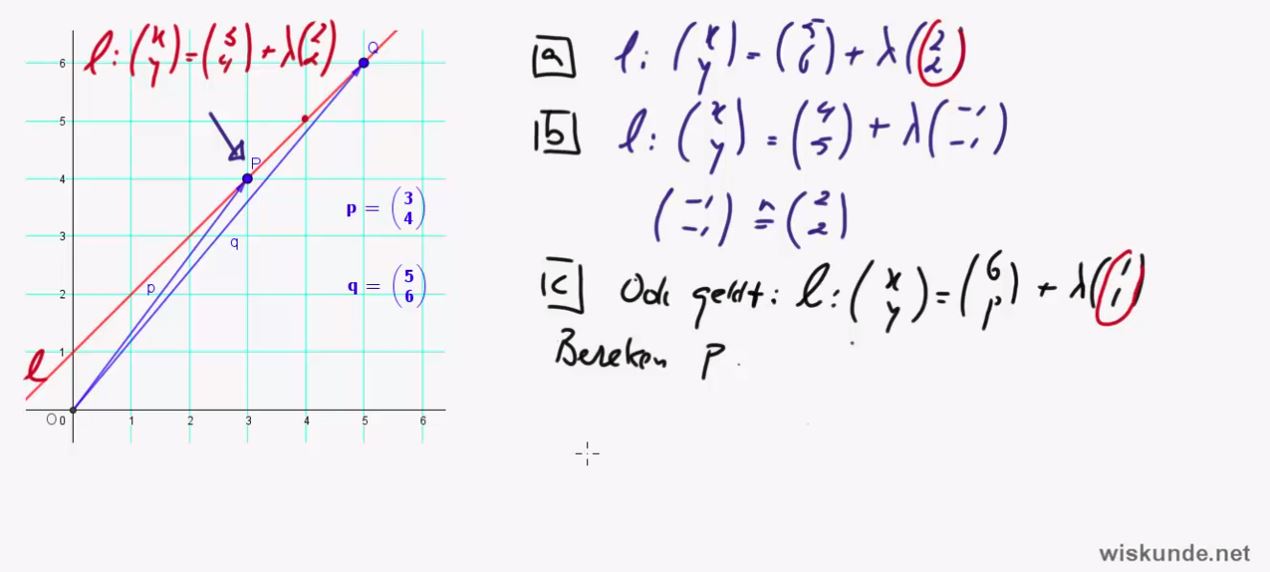 l: (x y) = (3 4) + λ(2 2)
Q
6
5
P
4
p = (3 4)
3
q
p
2
q = (5 6)
1
l
O 0 1 2 3 4 5 6
a l: (x y) = (5 6) + λ(2 2)
b l: (x y) = (4 5) + λ(-1 -1)
(-1 -1) ≙ (2 2)
c Ook geldt: l: (x y) = (6 p) + λ(1 1)
Bereken p.
wiskunde.net